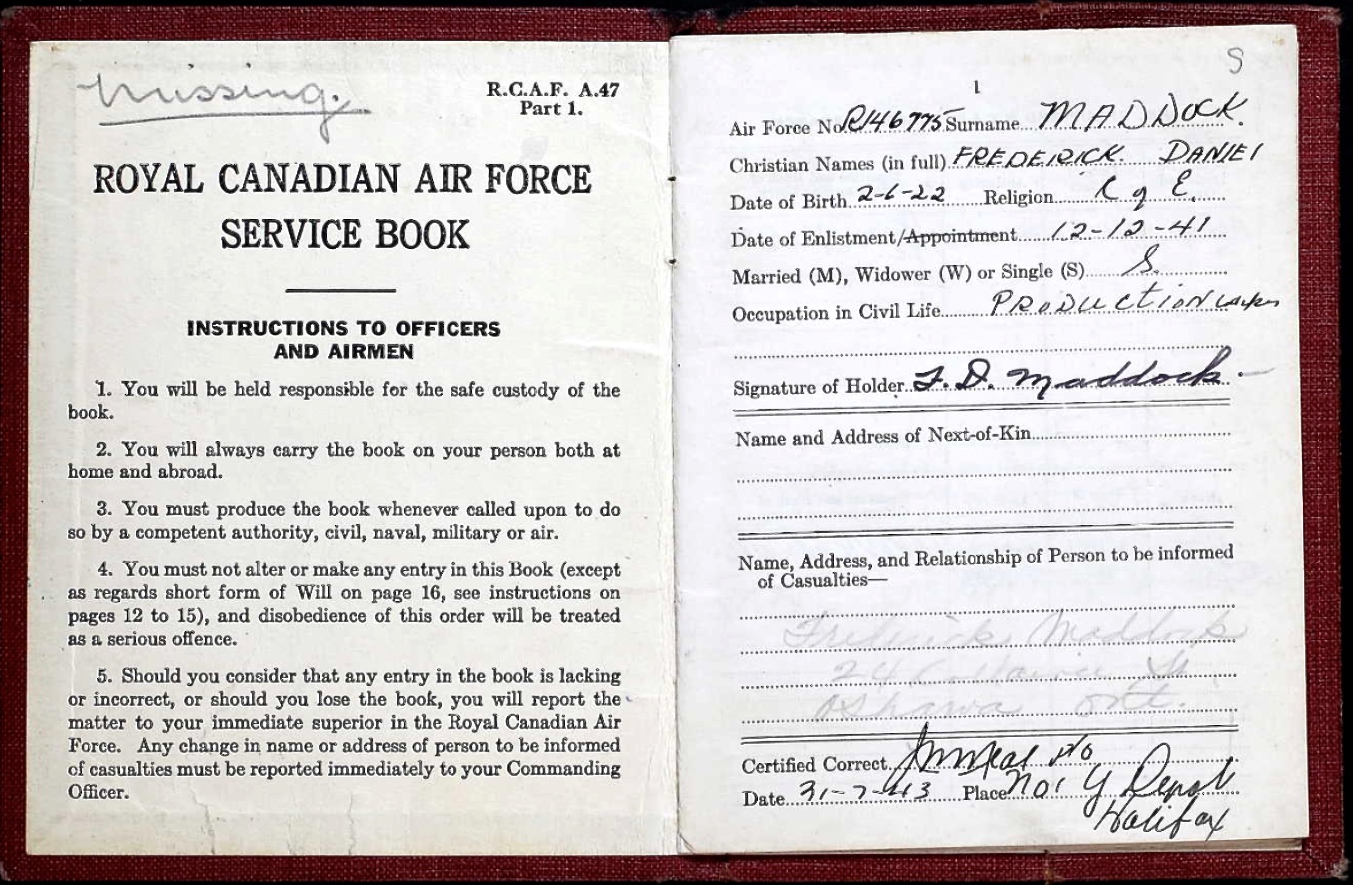 Missing.
R.C.A.F. A.47
Part 1.
ROYAL CANADIAN AIR FORCE
SERVICE BOOK
INSTRUCTIONS TO OFFICERS
AND AIRMEN
1. You will be held responsible for the safe custody of the
book.
2. You will always carry the book on your person both at
home and abroad.
3. You must produce the book whenever called upon to do
so by a competent authority, civil, naval, military or air.
4. You must not alter or make any entry in this Book (except
as regards short form of Will on page 16, see instructions on
pages 12 to 15), and disobedience of this order will be treated
as a serious offence.
5. Should you consider that any entry in the book is lacking
or incorrect, or should you lose the book, you will report the
matter to your immediate superior in the Royal Canadian Air
Force. Any change in name or address of person to be informed
of casualties must be reported immediately to your Commanding
Officer.
S
1
Air Force No. R146775 Surname MADDOCK.
Christian Names (in full) FREDERICK. DANIEL
Date of Birth 2-6-22 Religion C of E.
Date of Enlistment/Appointment 12-12-41
Married (M), Widower (W) or Single (S) S.
Occupation in Civil Life PRODUCTION
Signature of Holder F. D. Maddock.
Name and Address of Next-of-Kin
Name, Address, and Relationship of Person to be informed
of Casualties—
Frederick Maddock
St
Oshawa Ont.
Certified Correct
Date 31-7-43 Place No 1 Y Depot
Halifax